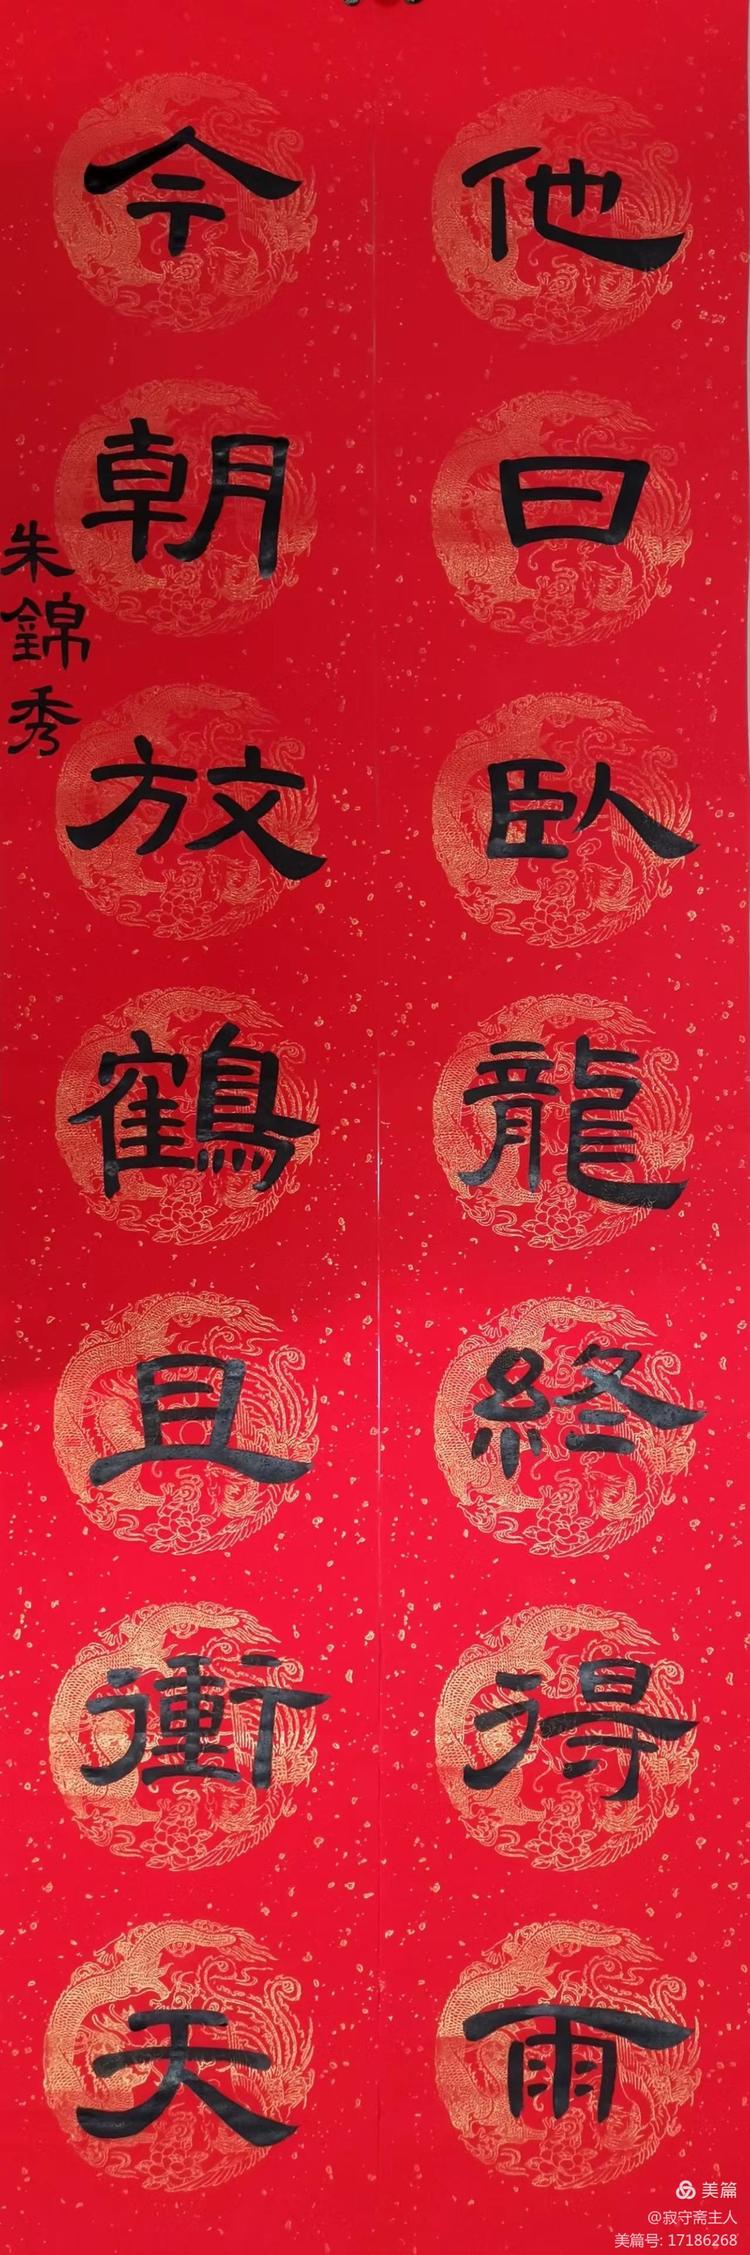 他日臥龍終得雨
今朝放鶴且衝天
朱錦秀
美篇
@寂守斋主人
美篇号: 17186268